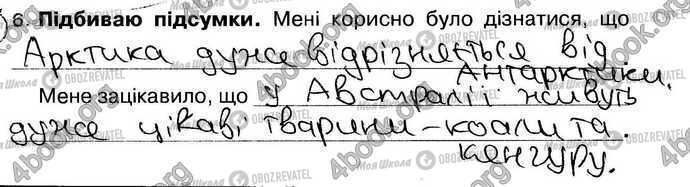 6. Підбиваю підсумки. Мені корисно було дізнатися, що
Арктика дуже відрізняється від
Антарктики.
Мене зацікавило, що у Австралії живуть
дуже цікаві тварини – коали та
кенгуру.